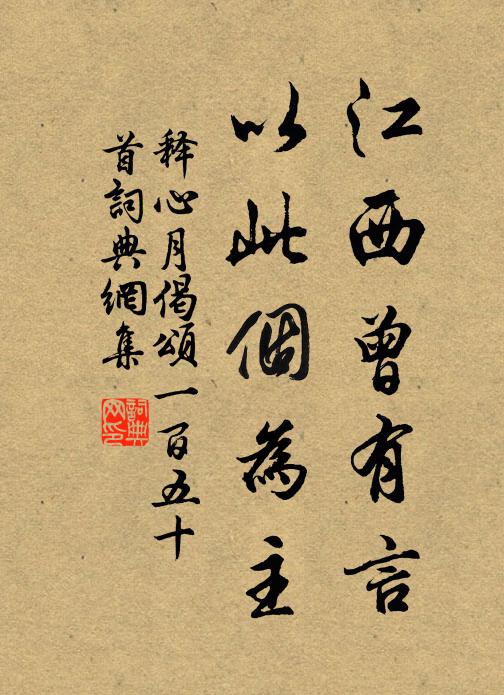 江西曾有言
以此個為主
释心月偈頌一百五十
首詞典網集
詞典
网印